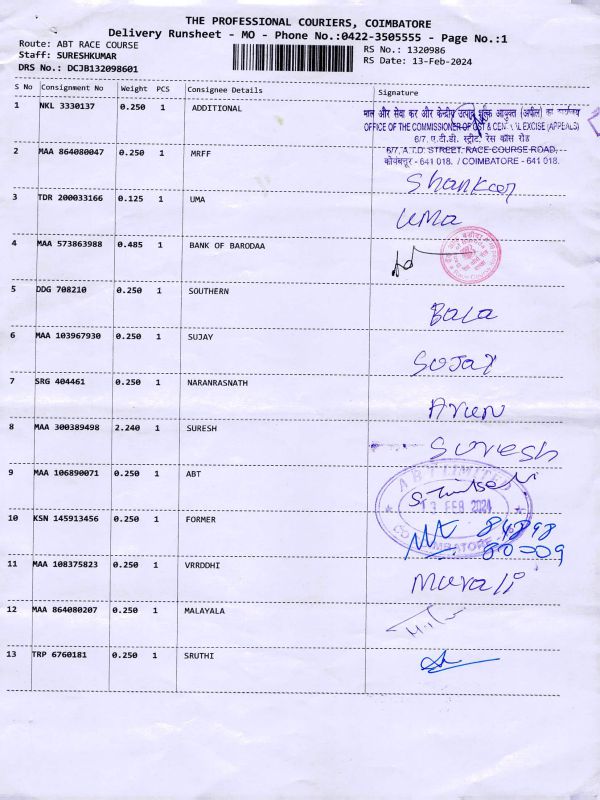 THE PROFESSIONAL COURIERS, COIMBATORE
Delivery Runsheet - MO - Phone No.:0422-3505555 - Page No.:1
Route: ABT RACE COURSE
Staff: SURESHKUMAR
DRS No.: DCJB132098601
RS No.: 1320986
RS Date: 13-Feb-2024
S No Consignment No Weight PCS Consignee Details Signature
1 NKL 3330137 0.250 1 ADDITIONAL
माल और सेवा कर और केन्द्रीय उत्पाद शुल्क आयुक्त (अपील) का कार्यालय
OFFICE OF THE COMMISSIONER OF GST & CENTRAL EXCISE (APPEALS)
6/7, ए.टी.डी. स्ट्रीट, रेस कोर्स रोड
6/7, A.T.D. STREET, RACE COURSE ROAD,
कोयंबत्तूर - 641 018. / COIMBATORE - 641 018.
2 MAA 864080047 0.250 1 MRFF Shankar
3 TDR 200033166 0.125 1 UMA UMA
4 MAA 573863988 0.485 1 BANK OF BARODAA
5 DDG 708210 0.250 1 SOUTHERN Bala
6 MAA 103967930 0.250 1 SUJAY Sujay
7 SRG 404461 0.250 1 NARANRASNATH Arun
8 MAA 300389498 2.240 1 SURESH Suresh
9 MAA 106890071 0.250 1 ABT
ABT LIMITED
13 FEB 2024
COIMBATORE
10 KSN 145913456 0.250 1 FORMER 84898
80009
11 MAA 108375823 0.250 1 VRRDDHI Murali
12 MAA 864080207 0.250 1 MALAYALA
13 TRP 6760181 0.250 1 SRUTHI